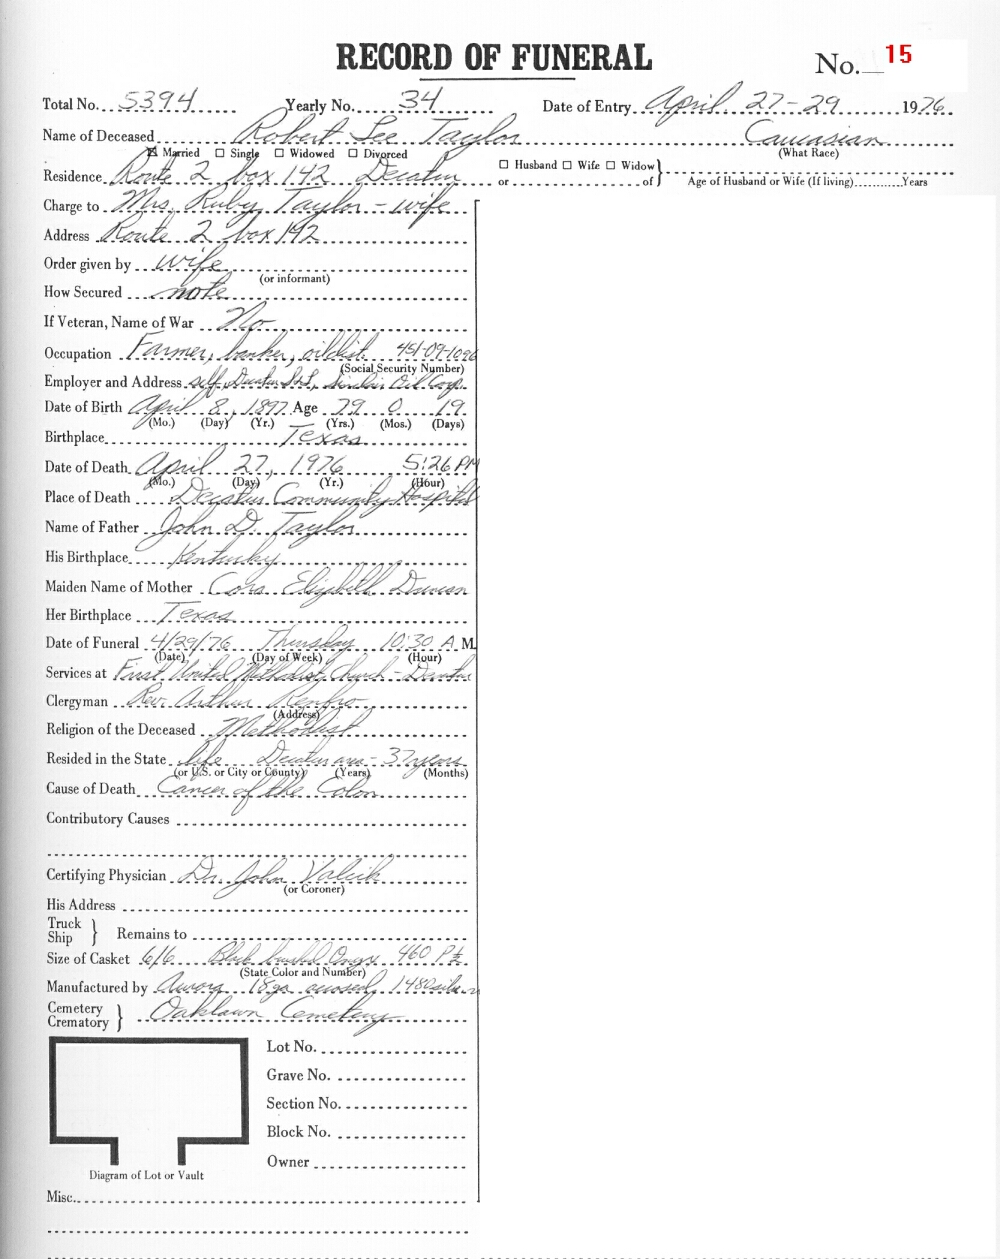 RECORD OF FUNERAL
No. 15
Total No. 5394 Yearly No. 34 Date of Entry April 27-29 1976
Name of Deceased Robert Lee Taylor Caucasian
☒ Married ☐ Single ☐ Widowed ☐ Divorced (What Race)
Residence Route 2 box 142 Decatur ☐ Husband ☐ Wife ☐ Widow
or of Age of Husband or Wife (If living) Years
Charge to Mrs. Ruby Taylor - wife
Address Route 2 box 142
Order given by wife
(or informant)
How Secured note
If Veteran, Name of War No
Occupation Farmer, banker, oildist. 451-09-1096
(Social Security Number)
Employer and Address self, Decatur S&L, Sinclair Oil Corp.
Date of Birth April 8, 1897 Age 79 0 19
(Mo.) (Day) (Yr.) (Yrs.) (Mos.) (Days)
Birthplace Texas
Date of Death April 27, 1976 5:26 PM
(Mo.) (Day) (Yr.) (Hour)
Place of Death Decatur Community Hospital
Name of Father John D. Taylor
His Birthplace Kentucky
Maiden Name of Mother Cora Elizabeth Duncan
Her Birthplace Texas
Date of Funeral 4/29/76 Thursday 10:30 A M.
(Date) (Day of Week) (Hour)
Services at First United Methodist Church - Decatur
Clergyman Rev. Arthur Renfro
(Address)
Religion of the Deceased Methodist
Resided in the State life Decatur area - 37 years
(or U.S. or City or County) (Years) (Months)
Cause of Death Cancer of the Colon
Contributory Causes
Certifying Physician Dr. John Valcik
(or Coroner)
His Address
Truck
Ship Remains to
Size of Casket 6/6 Black brushed Onyx 460 Pt
(State Color and Number)
Manufactured by Aurora 18ga 1480
Cemetery
Crematory Oaklawn Cemetery
Lot No.
Grave No.
Section No.
Block No.
Owner
Diagram of Lot or Vault
Misc.